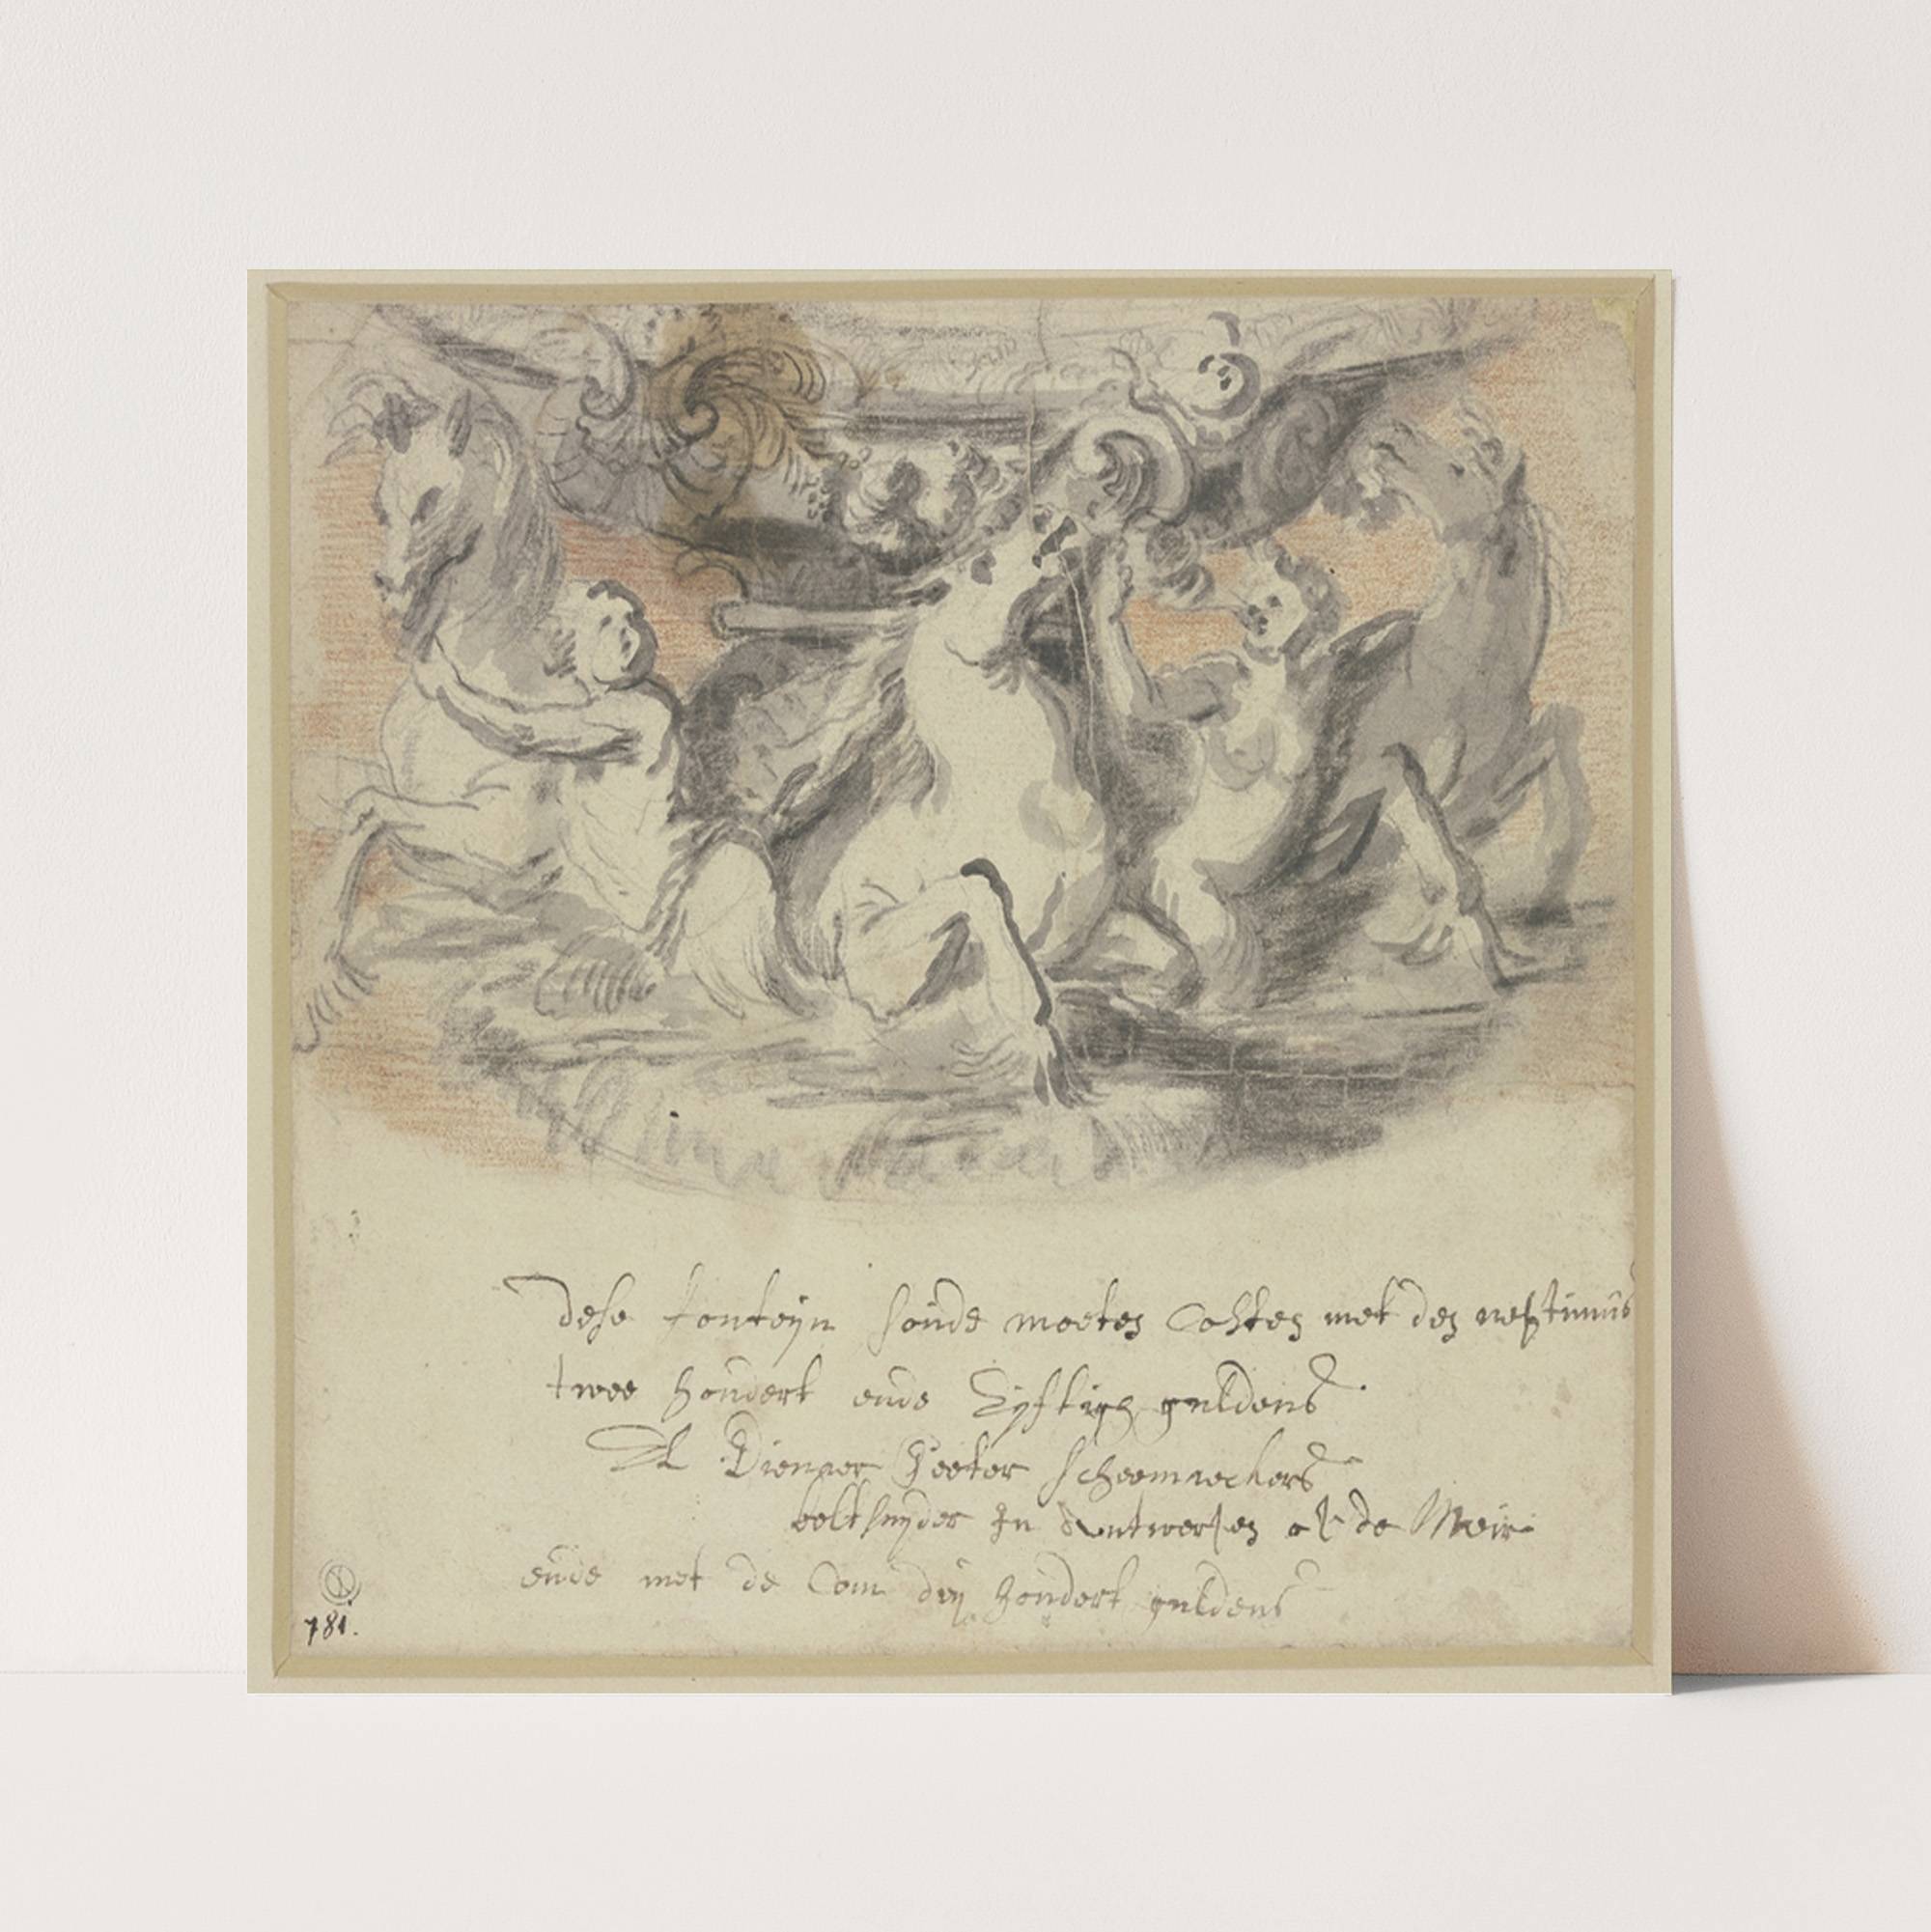 dese fonteijn soude moeten Costen met den neptunus
twee hondert ende vyftigh guldens
UL Dienaer Peeter scheemaeckers
beeltsnyder In Antwerpen op de Meir
ende met de Com dry hondert guldens
781.